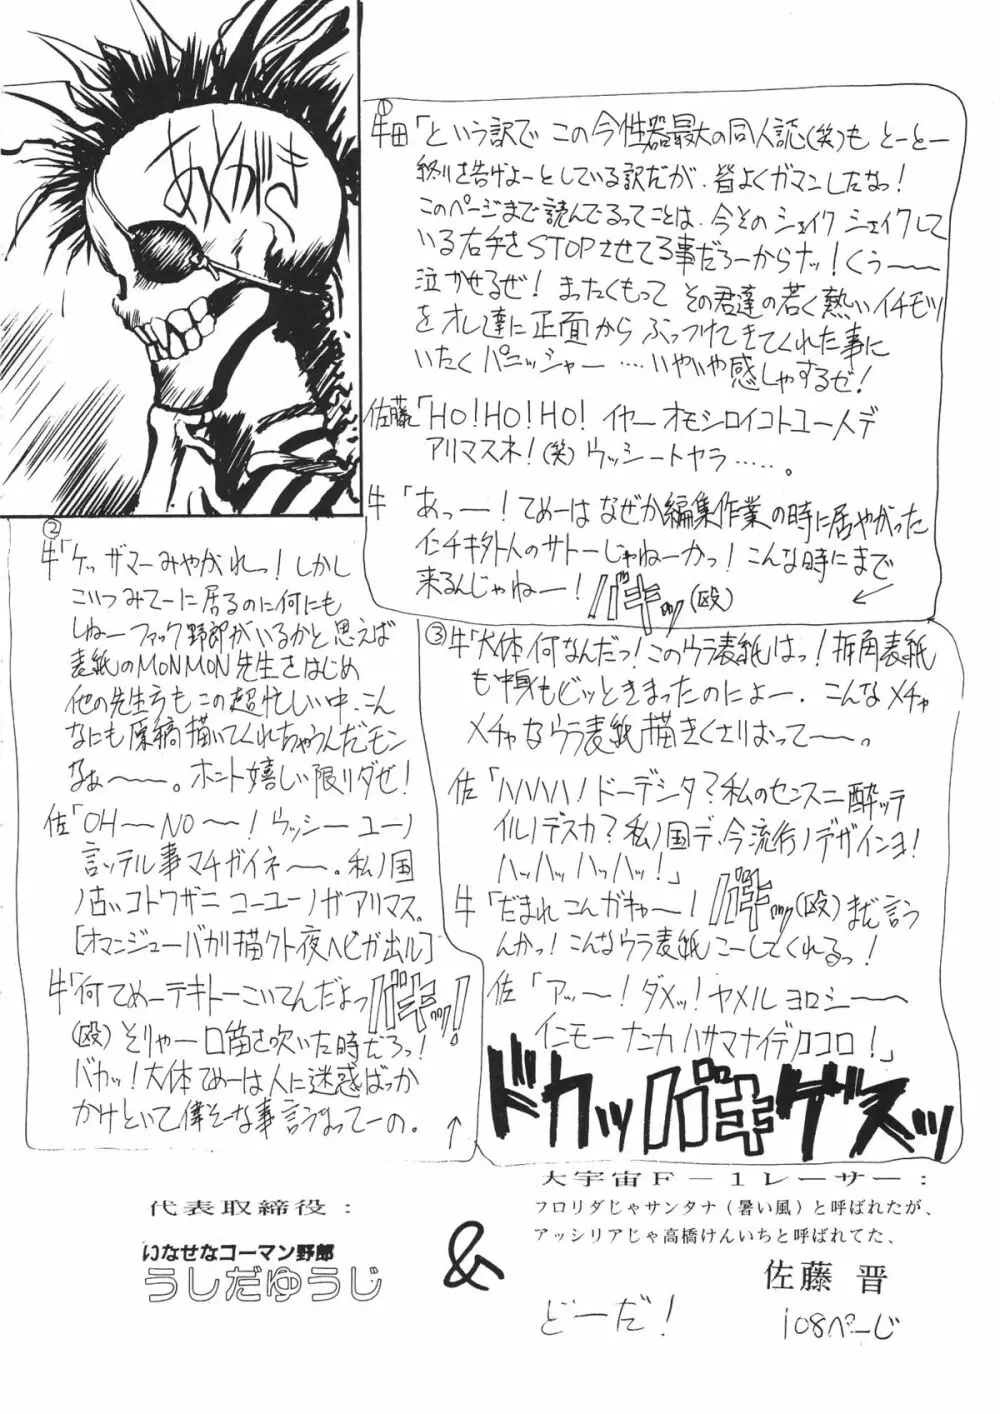 あとがき
①
牛田「という訳で この今性器最大の同人誌(笑)も とーとー
終りを告げよーとしている訳だが、皆よくガマンしたなっ！
このページまで読んでるってことは、今そのシェイクシェイクして
いる右手をSTOPさせてる事だろーからナッ！くぅ〜〜
泣かせるぜ！まったくもって その君達の若く熱いイチモツ
をオレ達に正面から ぶっつけてきてくれた事に
いたく パニッシャー ‥‥いやいや感しゃするぜ！
佐藤「HO！HO！HO！ イヤーオモシロイコトユー人デ
アリマスネ！(笑) ウッシートヤラ‥‥‥。
牛「あっ──！てめーは なぜか編集作業の時に居やがった
インチキ外人のサトーじゃねーかっ！こんな時にまで
来るんじゃねー！バキッ(殴)
②
牛「ケッ ザマーみやがれっ！しかし
こいつみてーに居るのに何にも
しねーファック野郎がいるかと思えば
表紙のMONMON先生をはじめ
他の先生方もこの超忙しい中、こん
なにも原稿描いてくれちゃうんだモン
なぁ〜〜。ホント嬉しい限りダぜ！
佐「OH〜NO〜！ウッシーユーノ
言ッテル事マチガイネ〜。私ノ国
ノ古いコトワザニ コーユーノガアリマス。
[オマンジューバカリ描クト夜ヘビガ出ル]
牛「何てめーテキトーこいてんだよっ バキッ！
(殴)そりゃー口笛を吹いた時だろっ！
バカッ！大体てめーは人に迷惑ばっか
かけといて偉そーな事言うなってーの。
③
牛「大体何なんだっ！このウラ表紙はっ！折角表紙
も中身もビッときまったのによー、こんなメチャ
メチャなウラ表紙描きくさりおって〜〜。
佐「ハハハハ！ドーデシタ？私のセンスニ酔ッテ
イルノデスカ？私ノ国デ、今流行ノデザインヨ！
ハッハッハッハッ！」
牛「だまれこんガキゃ〜！バキッ(殴)まだ言う
んかっ！こんなウラ表紙こーしてくれるっ！
佐「アッ〜！ダメッ！ヤメル ヨロシ〜〜
インモーナンカ ハサマナイデノココロ！」
ドカッバキゲスッ
代表取締役：
いなせなコーマン野郎
うしだゆうじ
&
大宇宙F－1レーサー：
フロリダじゃサンタナ（暑い風）と呼ばれたが、
アッシリアじゃ高橋けんいちと呼ばれてた、
佐藤 晋
どーだ！
108ぺーじ